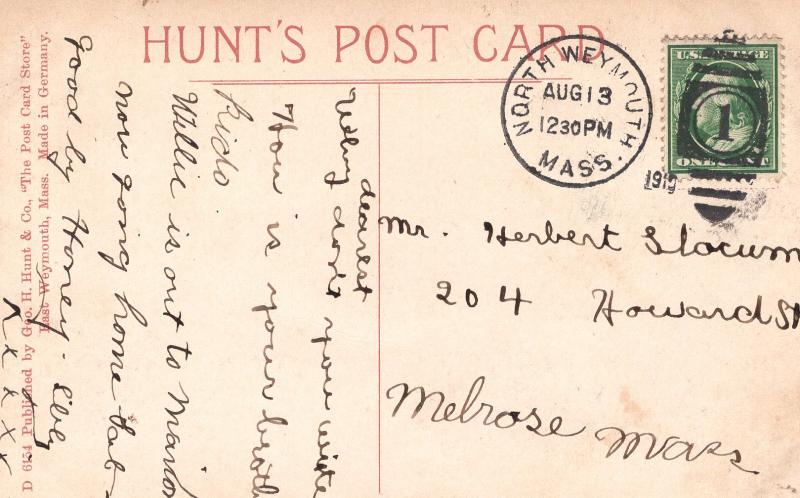 HUNT'S POST CARD
NORTH WEYMOUTH.
AUG 13
12 30 PM
MASS.
1910
U.S. POSTAGE
1
ONE CENT
Mr. Herbert Slocum
204 Howard St
Melrose Mass
dearest
Why don't you write
How is your broth
Kido.
Willie is out to Marion
now going home tab-
good by Honey.
x x x x x
D 6154 Published by Geo. H. Hunt & Co., "The Post Card Store"
East Weymouth, Mass. Made in Germany.